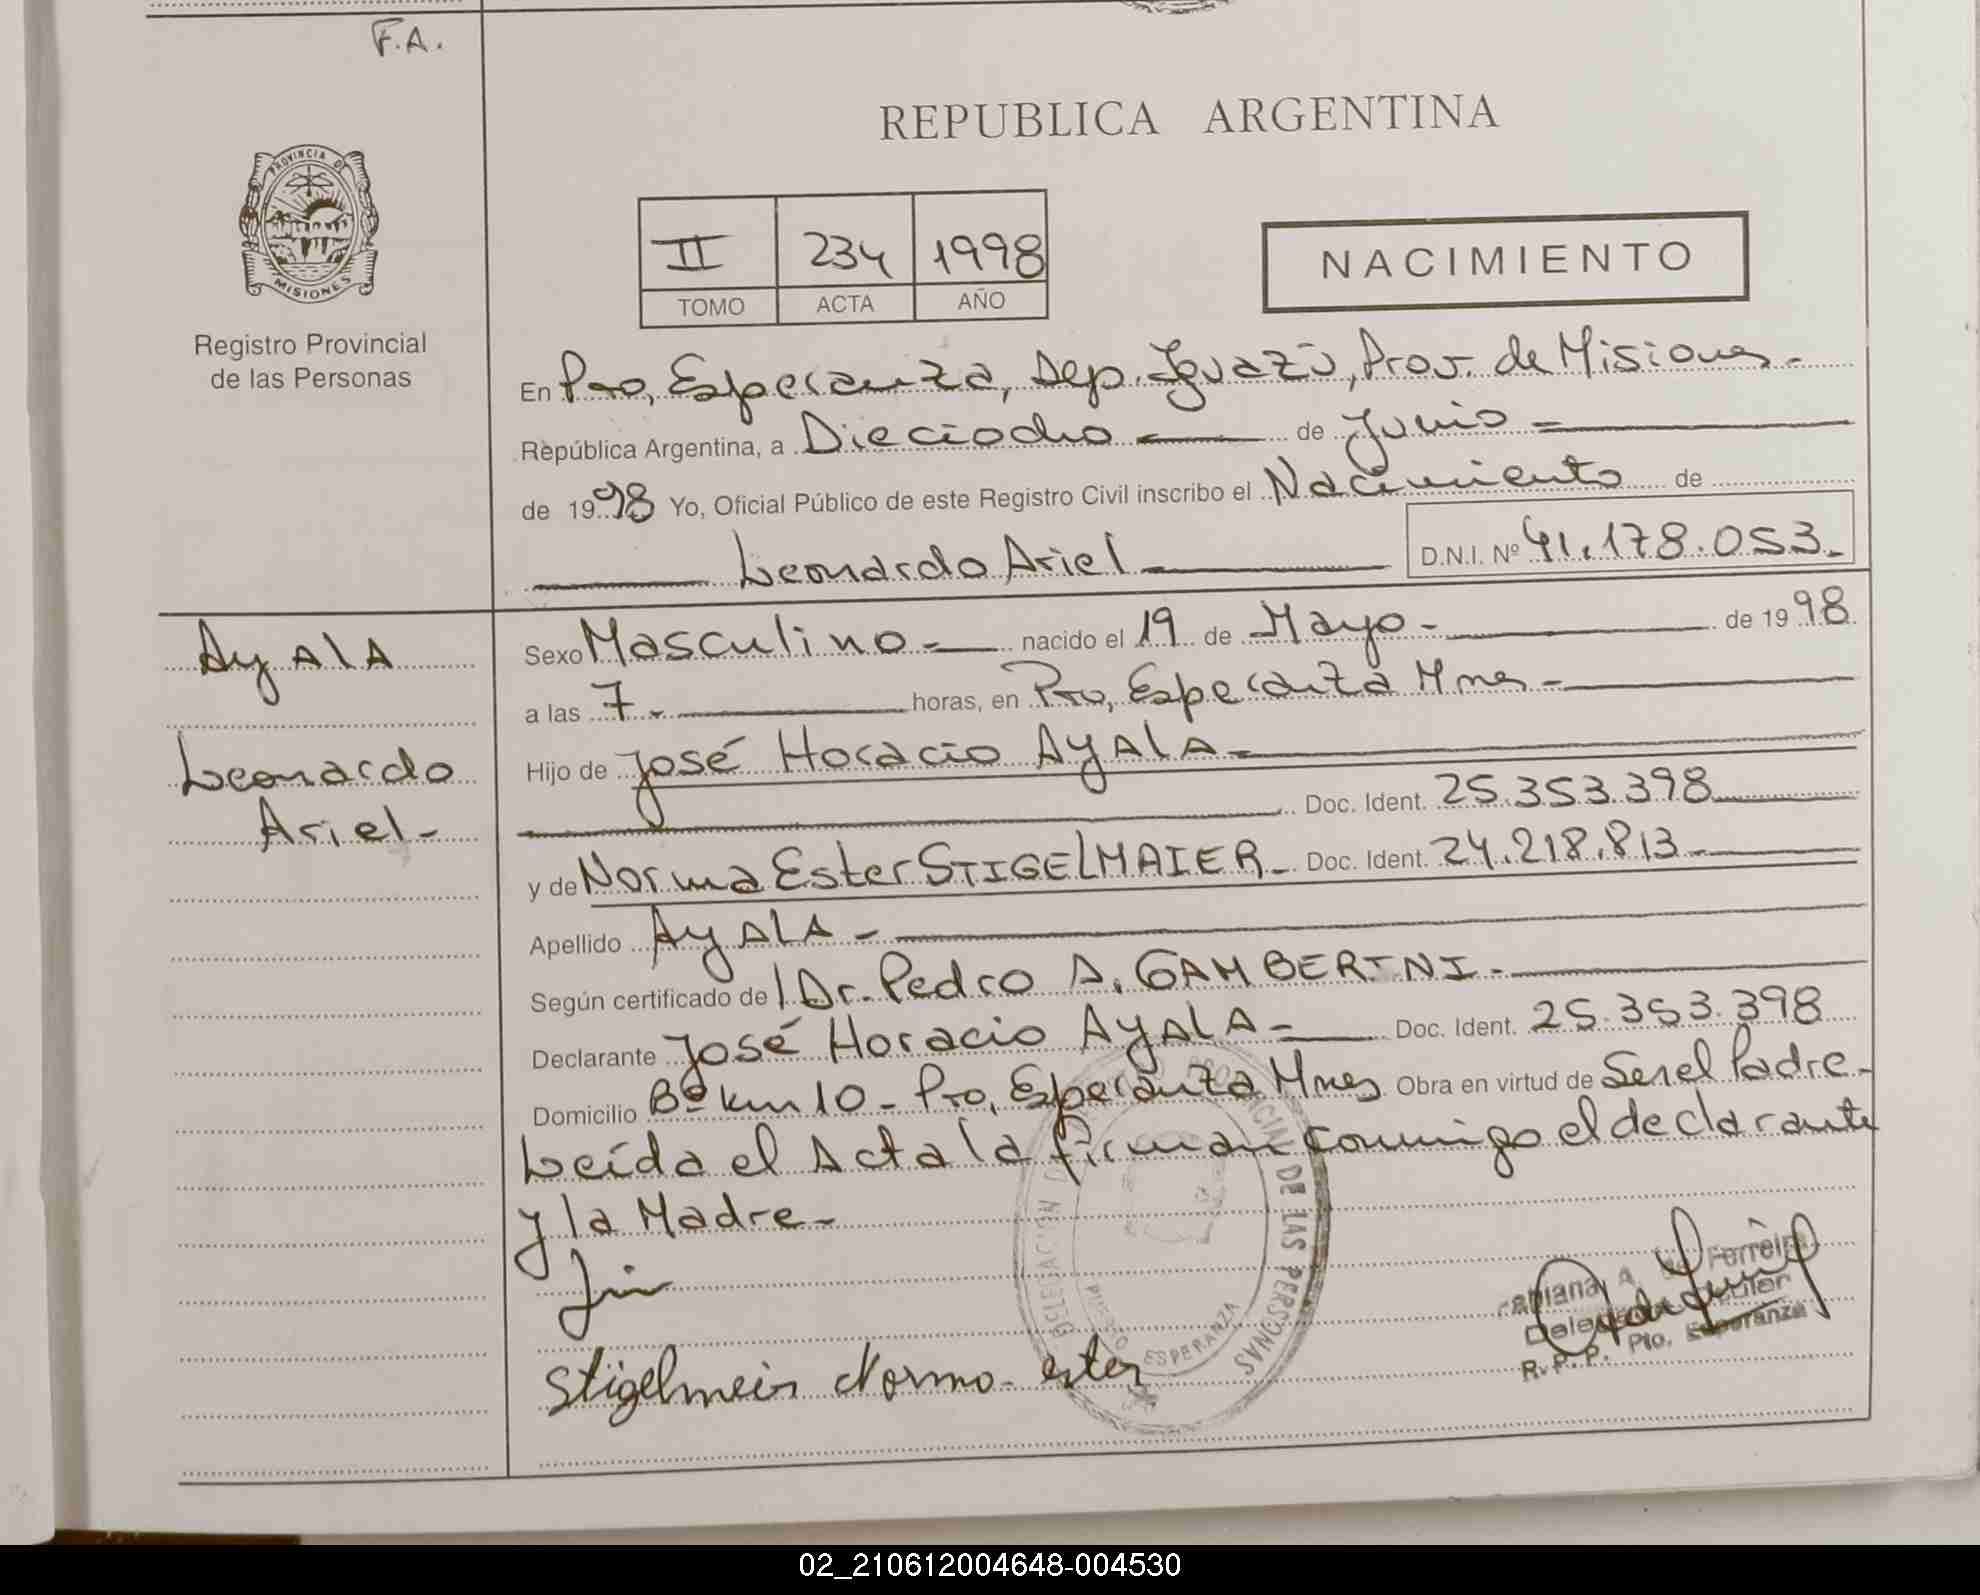 F.A.
PROVINCIA DE
MISIONES
Registro Provincial
de las Personas
REPUBLICA ARGENTINA
II 234 1998
TOMO ACTA AÑO
NACIMIENTO
En Pto, Esperanza, Dep. Iguazú, Prov. de Misiones.-
República Argentina, a Dieciocho de Junio
de 1998 Yo, Oficial Público de este Registro Civil inscribo el Nacimiento de
Leonardo Ariel D.N.I. Nº 41.178.053.
Ayala
Leonardo
Ariel-
Sexo Masculino- nacido el 19 de Mayo- de 1998
a las 7.- horas, en Pto, Esperanza Mnes-
Hijo de José Horacio Ayala-
Doc. Ident. 25.353.398
y de Norma Ester STIGELMAIER- Doc. Ident. 24.218.813-
Apellido Ayala-
Según certificado de Dr. Pedro A. GAMBERINI-
Declarante José Horacio Ayala- Doc. Ident. 25.353.398
Domicilio Bº km 10 - Pto, Esperanza Mnes Obra en virtud de Ser el Padre-
Leída el Acta la firman conmigo el declarante
y la Madre-
Stigelmeir Norma ester
DELEGACION
PROVINCIAL DE LAS PERSONAS
PUERTO ESPERANZA
Fabiana A. de Ferreira
R.P.P. Pto. Esperanza
02_210612004648-004530